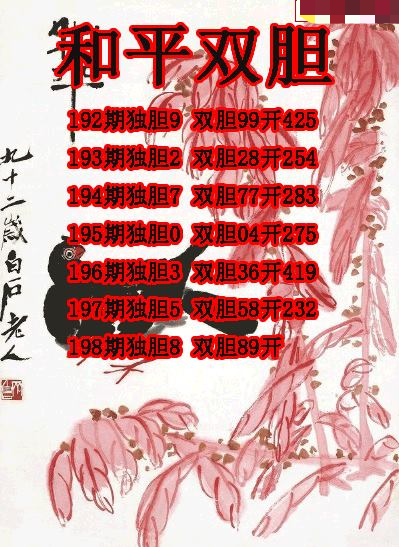 和平双胆
192期独胆9 双胆99开425
193期独胆2 双胆28开254
194期独胆7 双胆77开283
195期独胆0 双胆04开275
196期独胆3 双胆36开419
197期独胆5 双胆58开232
198期独胆8 双胆89开
九十二岁白石老人